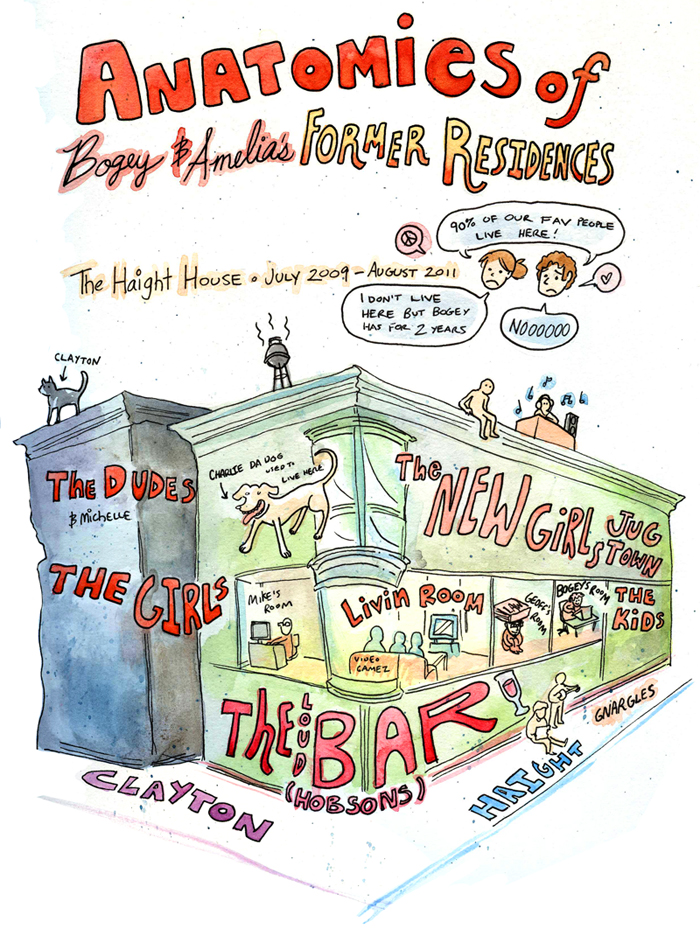 ANATOMiES of
Bogey & Amelia's FORMER RESIDENCES
90% OF OUR FAV PEOPLE
LIVE HERE!
The HAIGHT HOUSE • JULY 2009 - AUGUST 2011
I DON'T LIVE
HERE BUT BOGEY
HAS FOR 2 YEARS
NOOOOOO
CLAYTON
The DUDES
& MiCHELLE
THE GIRLS
CHARLIE DA DOG
USED TO
LIVE HERE
The NEW GiRLS
JUG
TOWN
MIKE'S
ROOM
Livin ROOM
VIDEO
GAMEZ
GEOFF'S
ROOM
BOGEY'S ROOM
THE
KiDS
The LOUD BAR
(HOBSONS)
GNARGLES
CLAYTON
HAIGHT